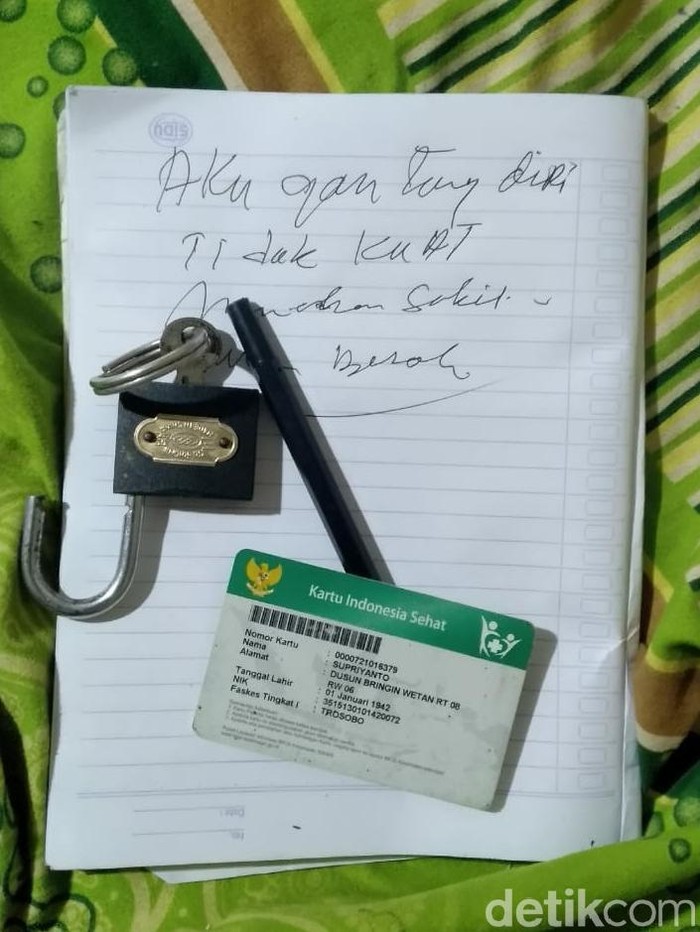 SIDU
Aku gantung diri
Tidak KUAT
Menahan Sakit
Berak
Kartu Indonesia Sehat
Nomor Kartu : 0000721016379
Nama : SUPRIYANTO
Alamat : DUSUN BRINGIN WETAN RT 08
RW 06
Tanggal Lahir : 01 Januari 1942
NIK : 3515130101420072
Faskes Tingkat I : TROSOBO
No.
Date :
detikcom